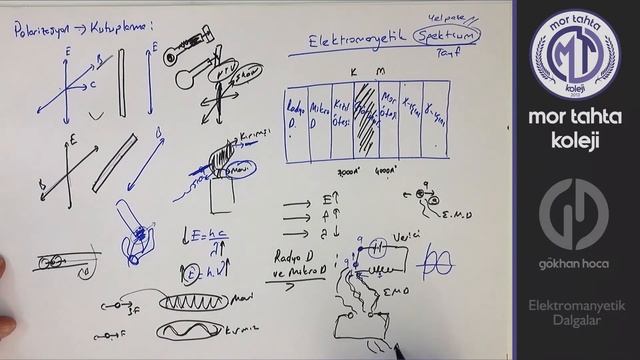 Polarizasyon → Kutuplanma:
E
B
C
E
E
B
B
Kırmızı
mavi
↓ E = h.c
λ↑
↑ E = h.ν↑
mavi
Kırmızı
yelpaze
Elektromanyetik Spektrum
Tayf
K M
Radyo D.
Mikro D.
Kızıl ötesi
Mor ötesi
X-ışını
γ-ışını
7000A° 4000A°
→ E↑
→ f↑
→ λ↓
Radyo D
ve Mikro D
q
E.M.D
Verici
q
E.M.D
mor tahta koleji
MT
2012
mor tahta
koleji
gökhan hoca
Elektromanyetik
Dalgalar